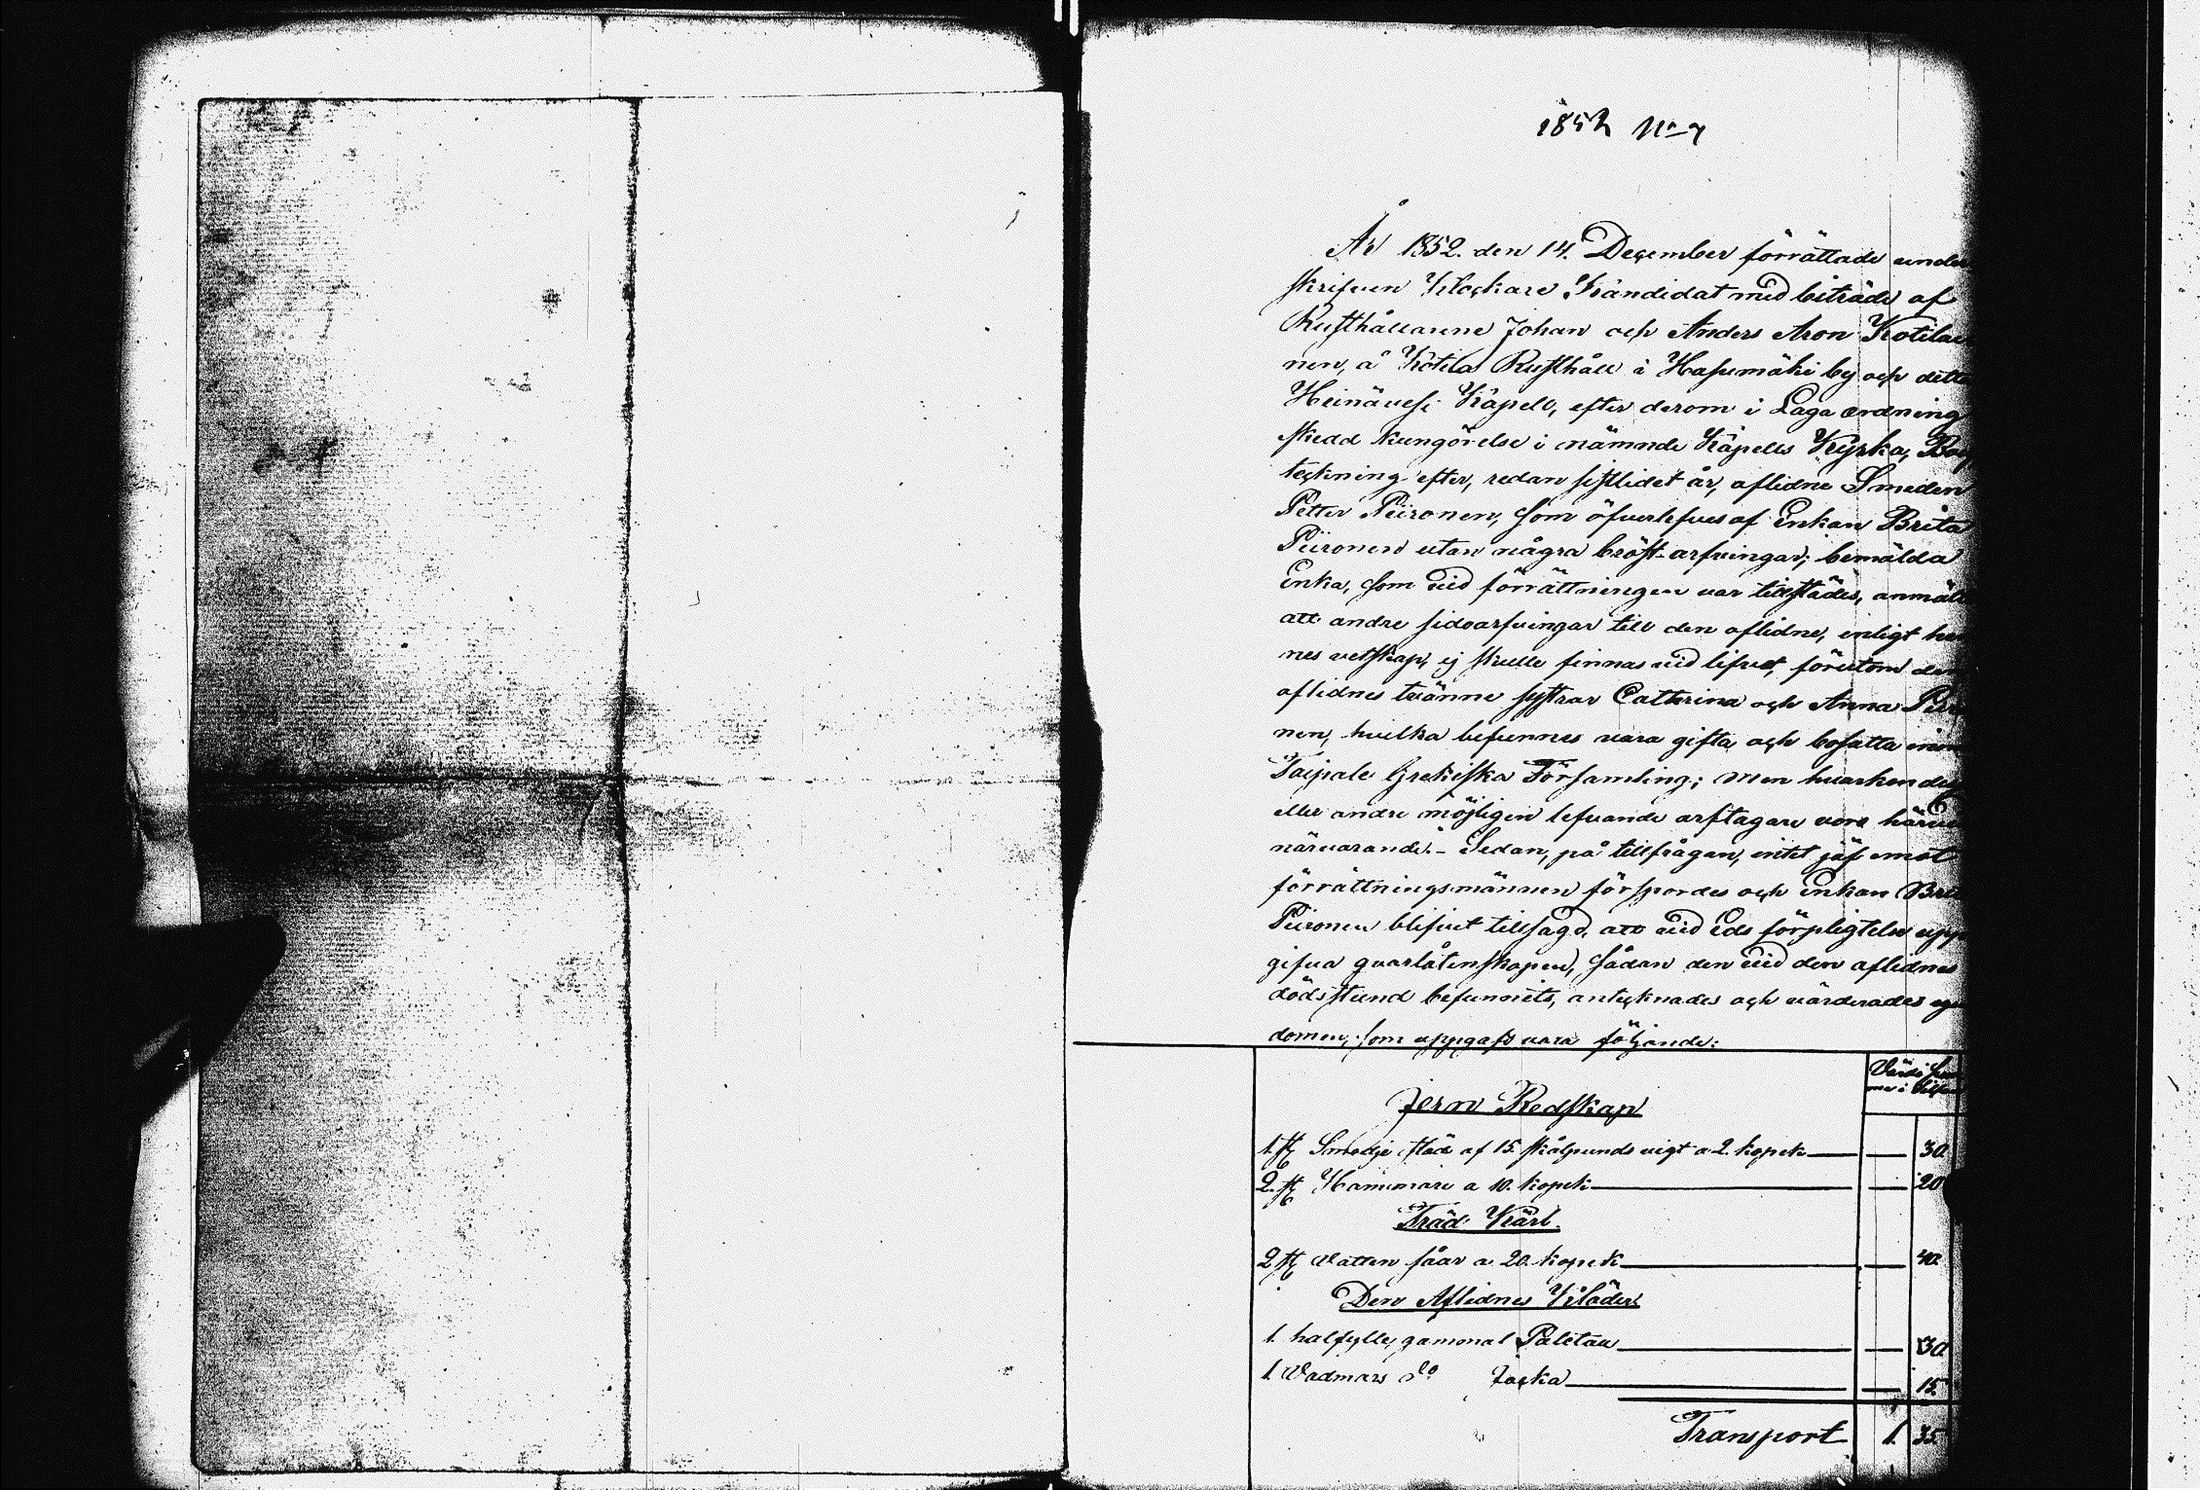 1852 No 7
År 1852. den 14. December förrättade under
skrifven Klockare Kandidat med biträde af
Rusthållarene Johan och Anders Aron Kotilai
nen, å Kotila Rusthåll i Hasumäki by och detta
Heinävesi Kapell, efter derom i Laga ordning
skedd kungörelse i nämnde Kapells Kyrka, Bou
teckning efter, redan sistlidet år, aflidne Smeden
Petter Piironen, som öfverlefves af Enkan Brita
Piironen utan några bröst-arfvingar; bemälda
Enka, som vid förrättningen var tillstädes, anmälte
att andre sidoarfvingar till den aflidne, enligt hen
nes vetskap, ej skulle finnas vid lifvet, förutom den
aflidnes tvänne systrar Catharina och Anna Piiro
nen, hvilka befunnes vara gifta och bosatta inom
Taipale Grekiska Församling; men hvarken de
eller andre möjligen lefvande arftagare voro härvid
närvarande. - Sedan, på tillfrågan, intet jäf emot
förrättningsmännen försspordes och Enkan Brita
Piironen blifvit tillsagd, att vid Eds förpligtelse upp
gifva qvarlåtenskapen, sådan den vid den aflidnes
dödsstund befunnits, antecknades och värderades egen
domen, som uppgafs vara följande:
Jern Redskap
1. st. Smedje städ af 15. skålpunds vigt a 2. kopek 30
2. st. Hammare a 10. kopek 20
Träd Kärl.
2 st. Vatten såar a 20. kopek 40
Den Aflidnes Kläder
1. halfylle, gammal Paletau 30
1. Vadmars do Jacka 15
Transport 1. 35